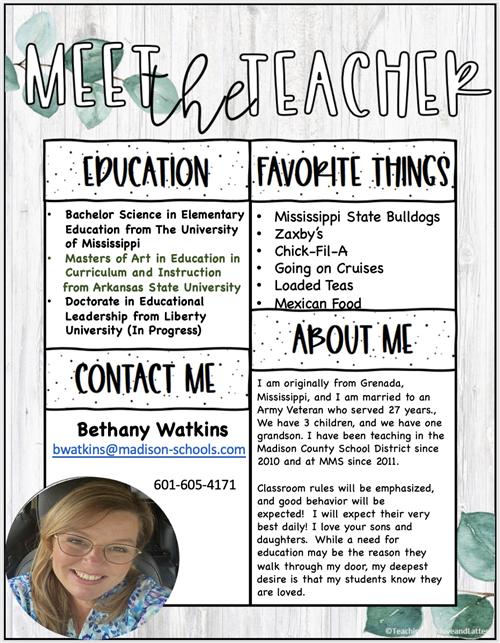 MEET the TEACHER
EDUCATION
• Bachelor Science in Elementary
Education from The University
of Mississippi
• Masters of Art in Education in
Curriculum and Instruction
from Arkansas State University
• Doctorate in Educational
Leadership from Liberty
University (In Progress)
FAVORITE THINGS
• Mississippi State Bulldogs
• Zaxby's
• Chick-Fil-A
• Going on Cruises
• Loaded Teas
• Mexican Food
CONTACT ME
Bethany Watkins
bwatkins@madison-schools.com
601-605-4171
ABOUT ME
I am originally from Grenada,
Mississippi, and I am married to an
Army Veteran who served 27 years.,
We have 3 children, and we have one
grandson. I have been teaching in the
Madison County School District since
2010 and at MMS since 2011.
Classroom rules will be emphasized,
and good behavior will be
expected! I will expect their very
best daily! I love your sons and
daughters. While a need for
education may be the reason they
walk through my door, my deepest
desire is that my students know they
are loved.